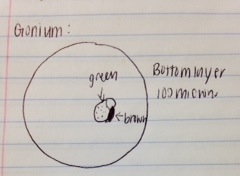 Gonium:
green
Bottom layer
100 micron
brown